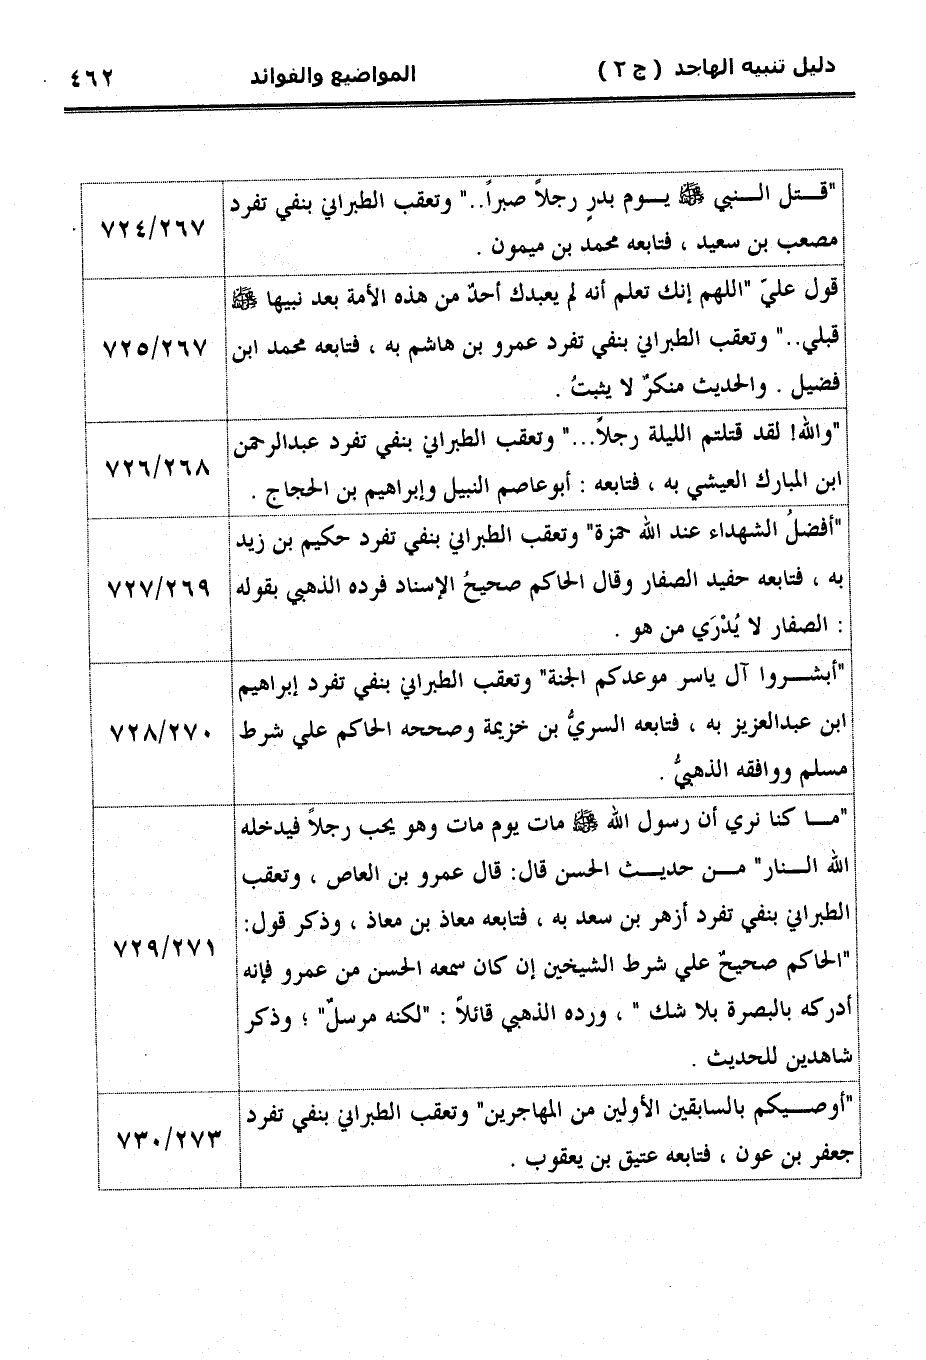 دليل تنبيه الهاجد ( ج ٢ ) المواضيع والفوائد ٤٦٢
"قـــتل الـــنبي ﷺ يـــوم بدرٍ رجلاً صبراً.." وتعقب الطبراني بنفي تفرد
مصعب بن سعيد ، فتابعه محمد بن ميمون .
٧٢٤/٢٦٧
قول عليّ "اللهم إنك تعلم أنه لم يعبدك أحدٌ من هذه الأمة بعد نبيها ﷺ
قبلي.." وتعقب الطبراني بنفي تفرد عمرو بن هاشم به ، فتابعه محمد ابن
فضيل . والحديث منكرٌ لا يثبتُ .
٧٢٥/٢٦٧
"والله! لقد قتلتم الليلة رجلاً..." وتعقب الطبراني بنفي تفرد عبدالرحمن
ابن المبارك العيشي به ، فتابعه : أبوعاصم النبيل وإبراهيم بن الحجاج .
٧٢٦/٢٦٨
"أفضلُ الشهداء عند الله حمزة" وتعقب الطبراني بنفي تفرد حكيم بن زيد
به ، فتابعه حفيد الصفار وقال الحاكم صحيحُ الإسناد فرده الذهبي بقوله
: الصفار لا يُدْرَي من هو .
٧٢٧/٢٦٩
"أبشـــروا آل ياسر موعدكم الجنة" وتعقب الطبراني بنفي تفرد إبراهيم
ابن عبدالعزيز به ، فتابعه السريُّ بن خزيمة وصححه الحاكم علي شرط
مسلم ووافقه الذهبيُّ .
٧٢٨/٢٧٠
"مـــا كنا نري أن رسول الله ﷺ مات يوم مات وهو يحب رجلاً فيدخله
الله الـــنار" مـــن حديـــث الحسن قال: قال عمرو بن العاص ، وتعقب
الطبراني بنفي تفرد أزهر بن سعد به ، فتابعه معاذ بن معاذ ، وذكر قول:
"الحاكم صحيحٌ علي شرط الشيخين إن كان سمعه الحسن من عمرو فإنه
أدركه بالبصرة بلا شك " ، ورده الذهبي قائلاً : "لكنه مرسلٌ" ؛ وذكر
شاهدين للحديث .
٧٢٩/٢٧١
"أوصـــيكم بالسابقين الأولين من المهاجرين" وتعقب الطبراني بنفي تفرد
جعفر بن عون ، فتابعه عتيق بن يعقوب .
٧٣٠/٢٧٣